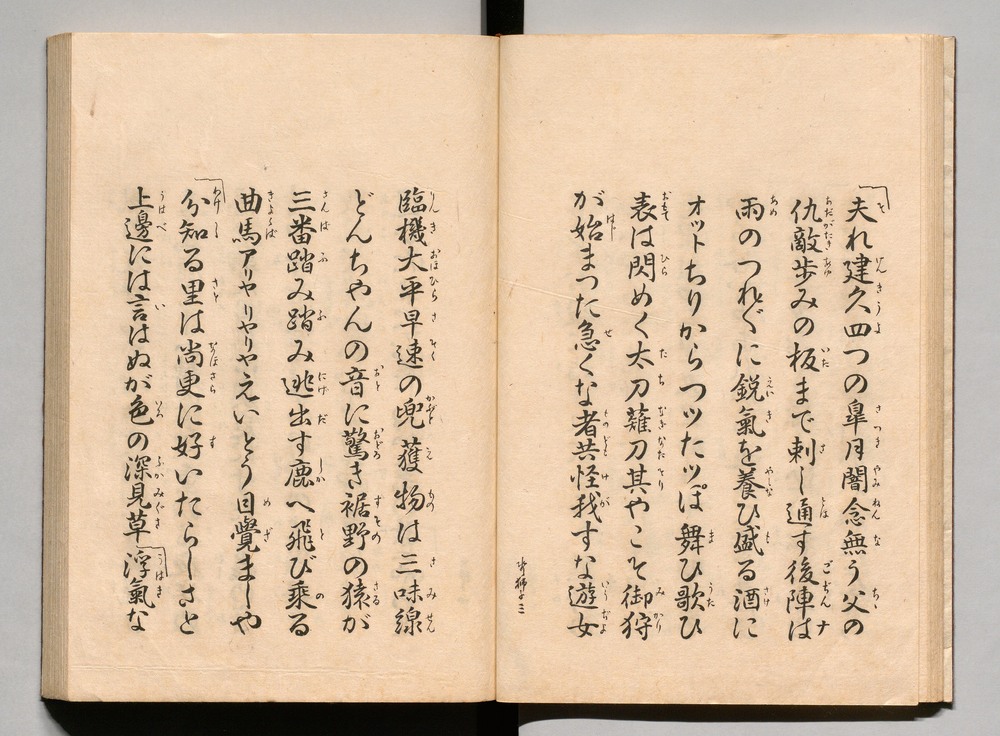 夫れ建久四つの皐月闇念無う父の
仇敵歩みの板まで刺し通す後陣は
雨のつれ〴〵に鋭氣を養ひ盛る酒に
オットちりからつッたッぽ舞ひ歌ひ
表は閃めく太刀薙刀其やこそ御狩
が始まつた急くな者共怪我すな遊女
臨機大平早速の兜獲物は三味線
どんちやんの音に驚き裾野の猿が
三番踏み踏み逃出す鹿へ飛び乘る
曲馬アリヤりやりやえいとう目覺ましや
分知る里は尚更に好いたらしさと
上邊には言はぬが色の深見草浮氣な